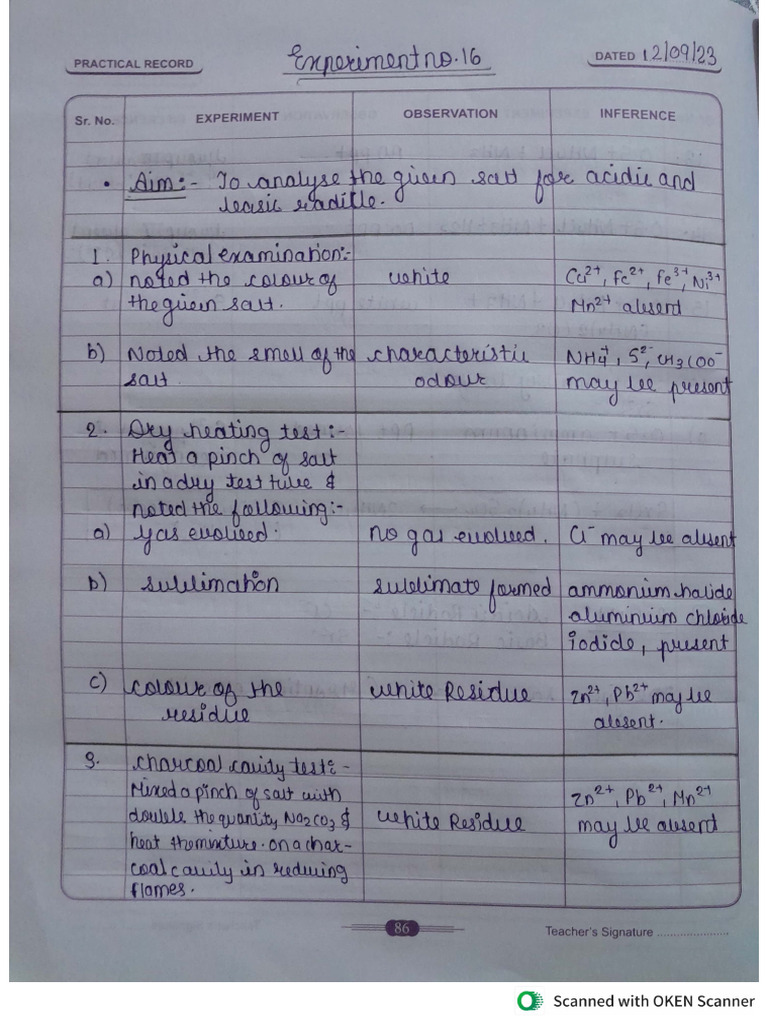 PRACTICAL RECORD
Experiment no. 16
DATED 12/09/23
Sr. No. EXPERIMENT OBSERVATION INFERENCE
• Aim:- To analyse the given salt for acidic and
basic radicle.
1. Physical examination:-
a) noted the colour of white Cu²⁺, Fe²⁺, Fe³⁺, Ni³⁺
the given salt. Mn²⁺ absent
b) Noted the smell of the characteristic NH4⁺, S²⁻, CH3COO⁻
salt. odour may be present
2. Dry heating test:-
Heat a pinch of salt
in a dry test tube &
noted the following:-
a) gas evolved. no gas evolved. Cl⁻ may be absent
b) sublimation sublimate formed ammonium halide
aluminium chloride
iodide, present
c) colour of the white Residue Zn²⁺, Pb²⁺ may be
residue absent.
3. charcoal cavity test:-
Mixed a pinch of salt with Zn²⁺, Pb²⁺, Mn²⁺
double the quantity Na2CO3 & white Residue may be absent
heat the mixture. on a char-
coal cavity in reducing
flames.
86
Teacher's Signature .....................
Scanned with OKEN Scanner